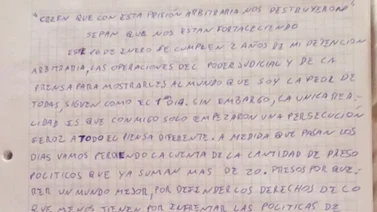 "CREEN QUE CON ESTA PRISIÓN ARBITRARIA NOS DESTRUYERON"
SEPAN QUE NOS ESTAN FORTALECIENDO
ESTE 16 DE ENERO SE CUMPLEN 2 AÑOS DE MI DETENCION
ARBITRARIA, LAS OPERACIONES DEL PODER JUDICIAL Y DE LA
PRENSA PARA MOSTRARLES AL MUNDO QUE SOY LA PEOR DE
TODAS, SIGUEN COMO EL 1° DIA. SIN EMBARGO, LA UNICA REA-
LIDAD ES QUE CONMIGO SOLO EMPEZARON UNA PERSECUCIÓN
FEROZ A TODO EL PIENSA DIFERENTE. A MEDIDA QUE PASAN LOS
DIAS VAMOS PERDIENDO LA CUENTA DE LA CANTIDAD DE PRESO
POLITICOS QUE YA SUMAN MAS DE 20. PRESOS POR QUE-
RER UN MUNDO MEJOR, POR DEFENDER LOS DERECHOS DE LO
QUE MENOS TIENEN POR ENFRENTAR LAS POLITICAS DE